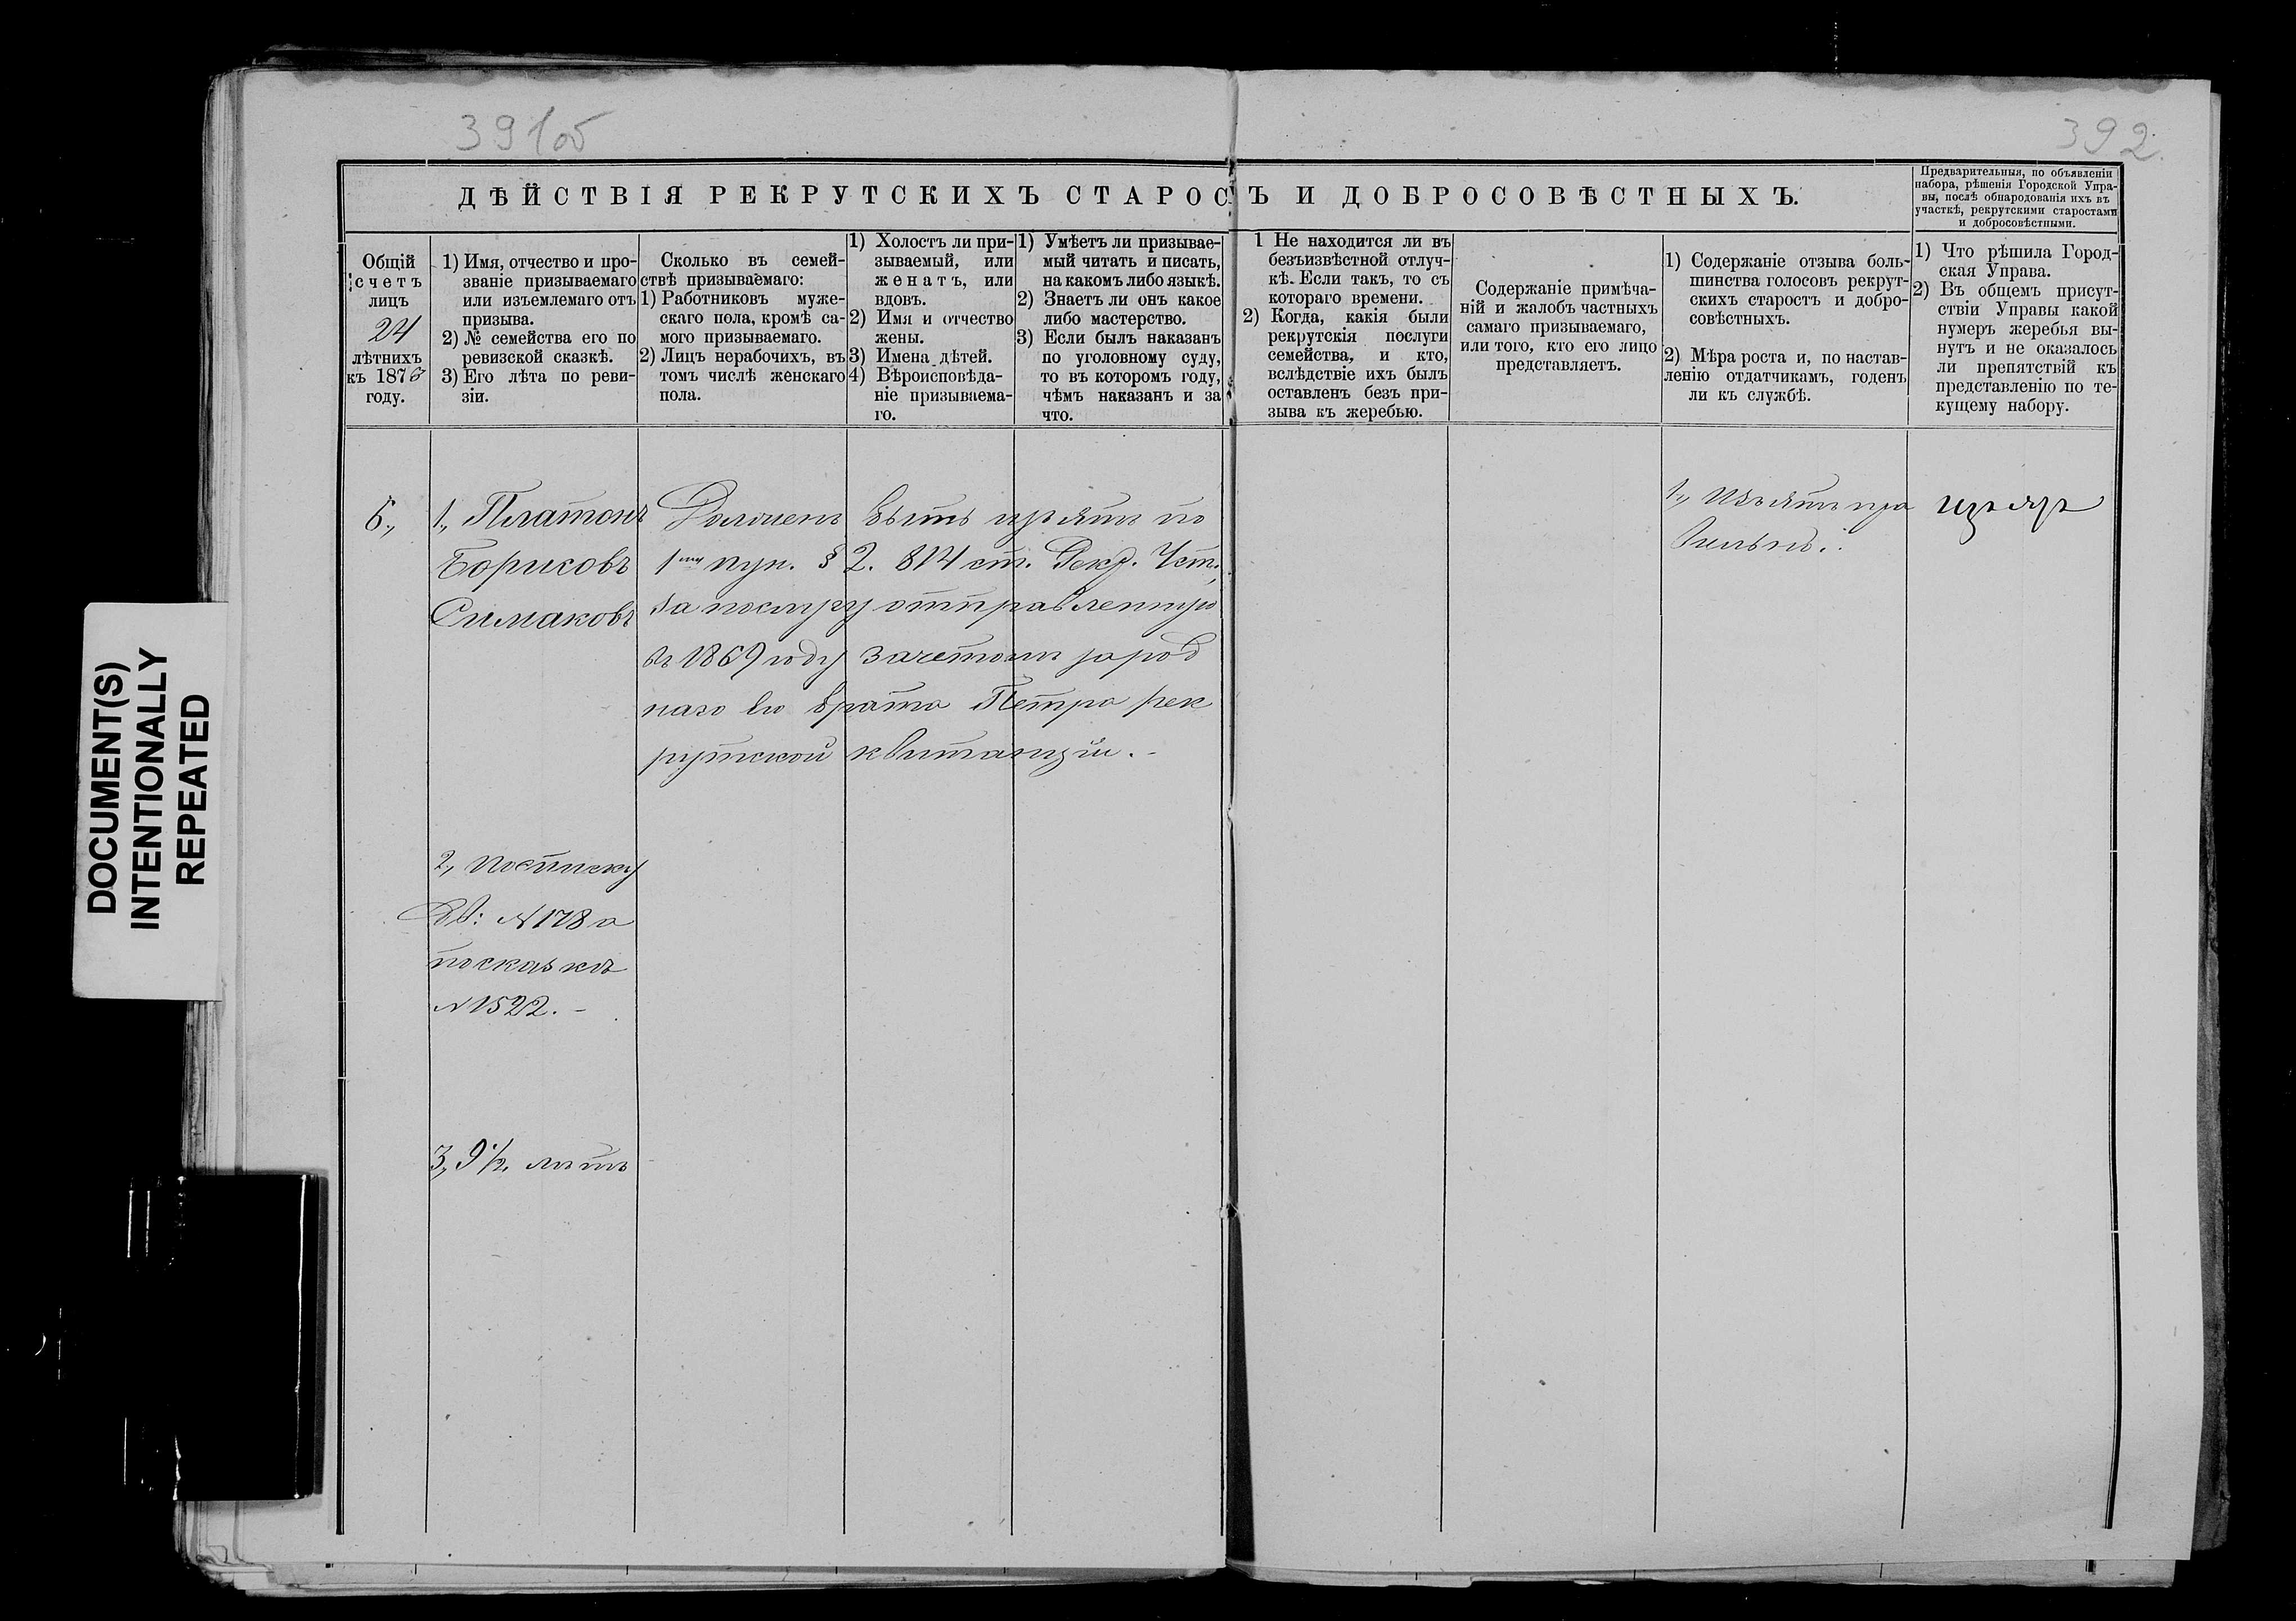 391об
392.
ДѢЙСТВІЯ РЕКРУТСКИХЪ СТАРОСТЪ И ДОБРОСОВѢСТНЫХЪ.
Предварительныя, по объявленіи
набора, рѣшенія Городской Упра-
вы, послѣ обнародованія ихъ въ
участкѣ, рекрутскими старостами
и добросовѣстными.
Общій
счетъ
лицъ
24
лѣтнихъ
къ 1873
году.
1) Имя, отчество и про-
званіе призываемаго
или изъемлемаго отъ
призыва.
2) № семейства его по
ревизской сказкѣ.
3) Его лѣта по реви-
зіи.
Сколько въ семей-
ствѣ призываемаго:
1) Работниковъ муже-
скаго пола, кромѣ са-
мого призываемаго.
2) Лицъ нерабочихъ, въ
томъ числѣ женскаго
пола.
1) Холостъ ли при-
зываемый, или
женатъ, или
вдовъ.
2) Имя и отчество
жены.
3) Имена дѣтей.
4) Вѣроисповѣда-
ніе призываема-
го.
1) Умѣетъ ли призывае-
мый читать и писать,
на какомъ либо языкѣ.
2) Знаетъ ли онъ какое
либо мастерство.
3) Если былъ наказанъ
по уголовному суду,
то въ которомъ году,
чѣмъ наказанъ и за
что.
1 Не находится ли въ
безъизвѣстной отлуч-
кѣ. Если такъ, то съ
котораго времени.
2) Когда, какія были
рекрутскія послуги
семейства, и кто,
вслѣдствіе ихъ былъ
оставленъ безъ при-
зыва къ жеребью.
Содержаніе примѣча-
ній и жалобъ частныхъ
самаго призываемаго,
или того, кто его лицо
представляетъ.
1) Содержаніе отзыва боль-
шинства голосовъ рекрут-
скихъ старостъ и добро-
совѣстныхъ.
2) Мѣра роста и, по настав-
ленію отдатчикамъ, годенъ
ли къ службѣ.
1) Что рѣшила Город-
ская Управа.
2) Въ общемъ присут-
ствіи Управы какой
нумеръ жеребья вы-
нутъ и не оказалось
ли препятствій къ
представленію по те-
кущему набору.
6.,
1., Платонъ
Борисовъ
Симаковъ
Долженъ быть изъятъ по
1му пун. § 2. 814 ст. Рекр. Уст.,
за послугу отправленную
въ 1869 году зачетомъ за род
наго его брата Петра рек
рутской квитанціи.-
1., Изъятъ пра
вильно.
изъятъ
2., по списку
Дв: № 178 а
по сказкѣ
№ 1522.-
3., 9 1/2, лѣтъ
DOCUMENT(S)
INTENTIONALLY
REPEATED